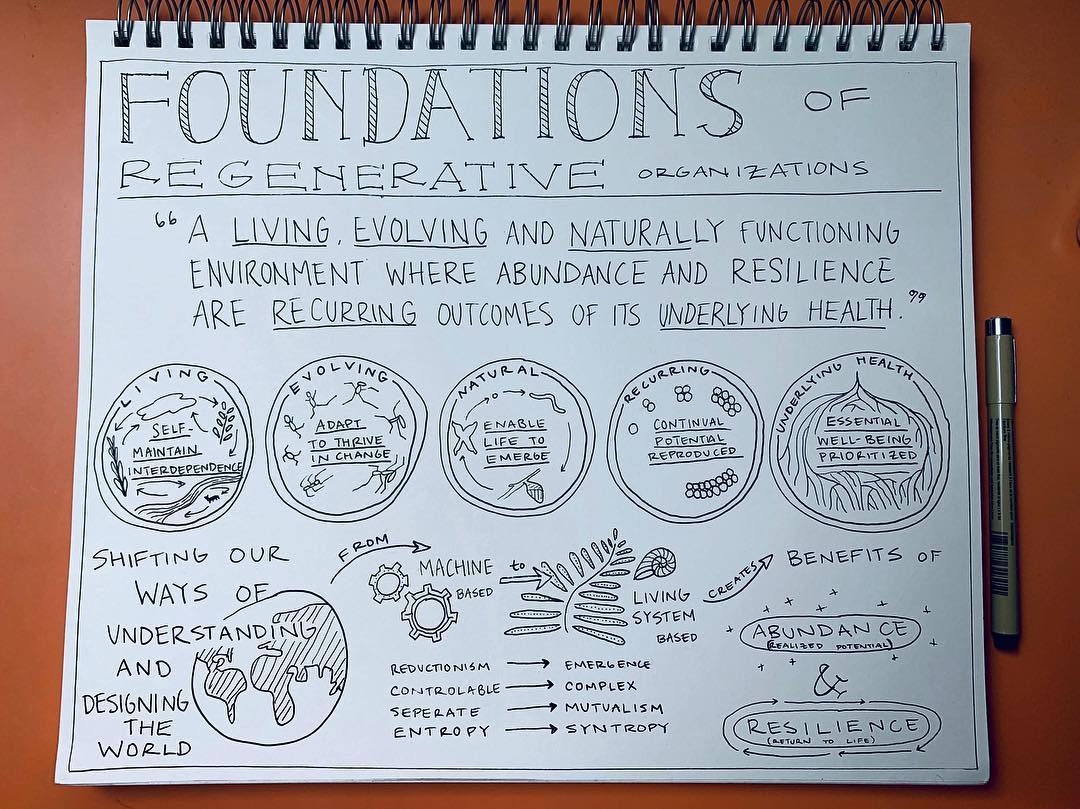 FOUNDATIONS OF
REGENERATIVE ORGANIZATIONS
“ A LIVING, EVOLVING AND NATURALLY FUNCTIONING
ENVIRONMENT WHERE ABUNDANCE AND RESILIENCE
ARE RECURRING OUTCOMES OF ITS UNDERLYING HEALTH. ”
LIVING
SELF-
MAINTAIN
INTERDEPENDENCE
EVOLVING
ADAPT
TO THRIVE
IN CHANGE
NATURAL
ENABLE
LIFE TO
EMERGE
RECURRING
CONTINUAL
POTENTIAL
REPRODUCED
UNDERLYING HEALTH
ESSENTIAL
WELL-BEING
PRIORITIZED
SHIFTING OUR
WAYS OF
UNDERSTANDING
AND
DESIGNING
THE
WORLD
FROM
MACHINE
BASED
to
LIVING
SYSTEM
BASED
REDUCTIONISM → EMERGENCE
CONTROLABLE → COMPLEX
SEPERATE → MUTUALISM
ENTROPY → SYNTROPY
CREATES
BENEFITS OF
ABUNDANCE
(REALIZED POTENTIAL)
&
RESILIENCE
(RETURN TO LIFE)